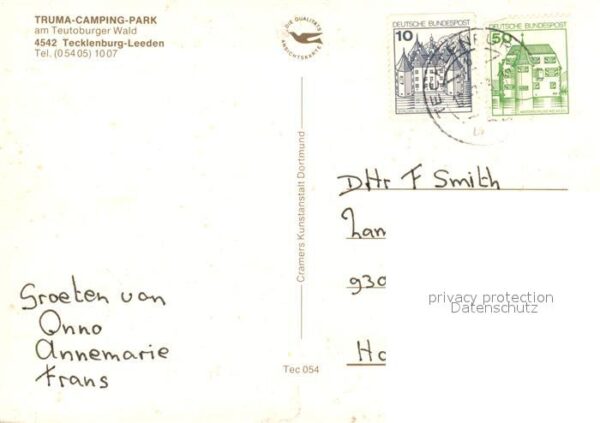 TRUMA-CAMPING-PARK
am Teutoburger Wald
4542 Tecklenburg-Leeden
Tel. (0 54 05) 10 07
DIE QUALITÄTS
ANSICHTSKARTE
DEUTSCHE BUNDESPOST
10
DEUTSCHE BUNDESPOST
50
Cramers Kunstanstalt Dortmund
DHr F Smith
930
privacy protection
Datenschutz
Groeten van
Onno
Annemarie
Frans
Tec 054